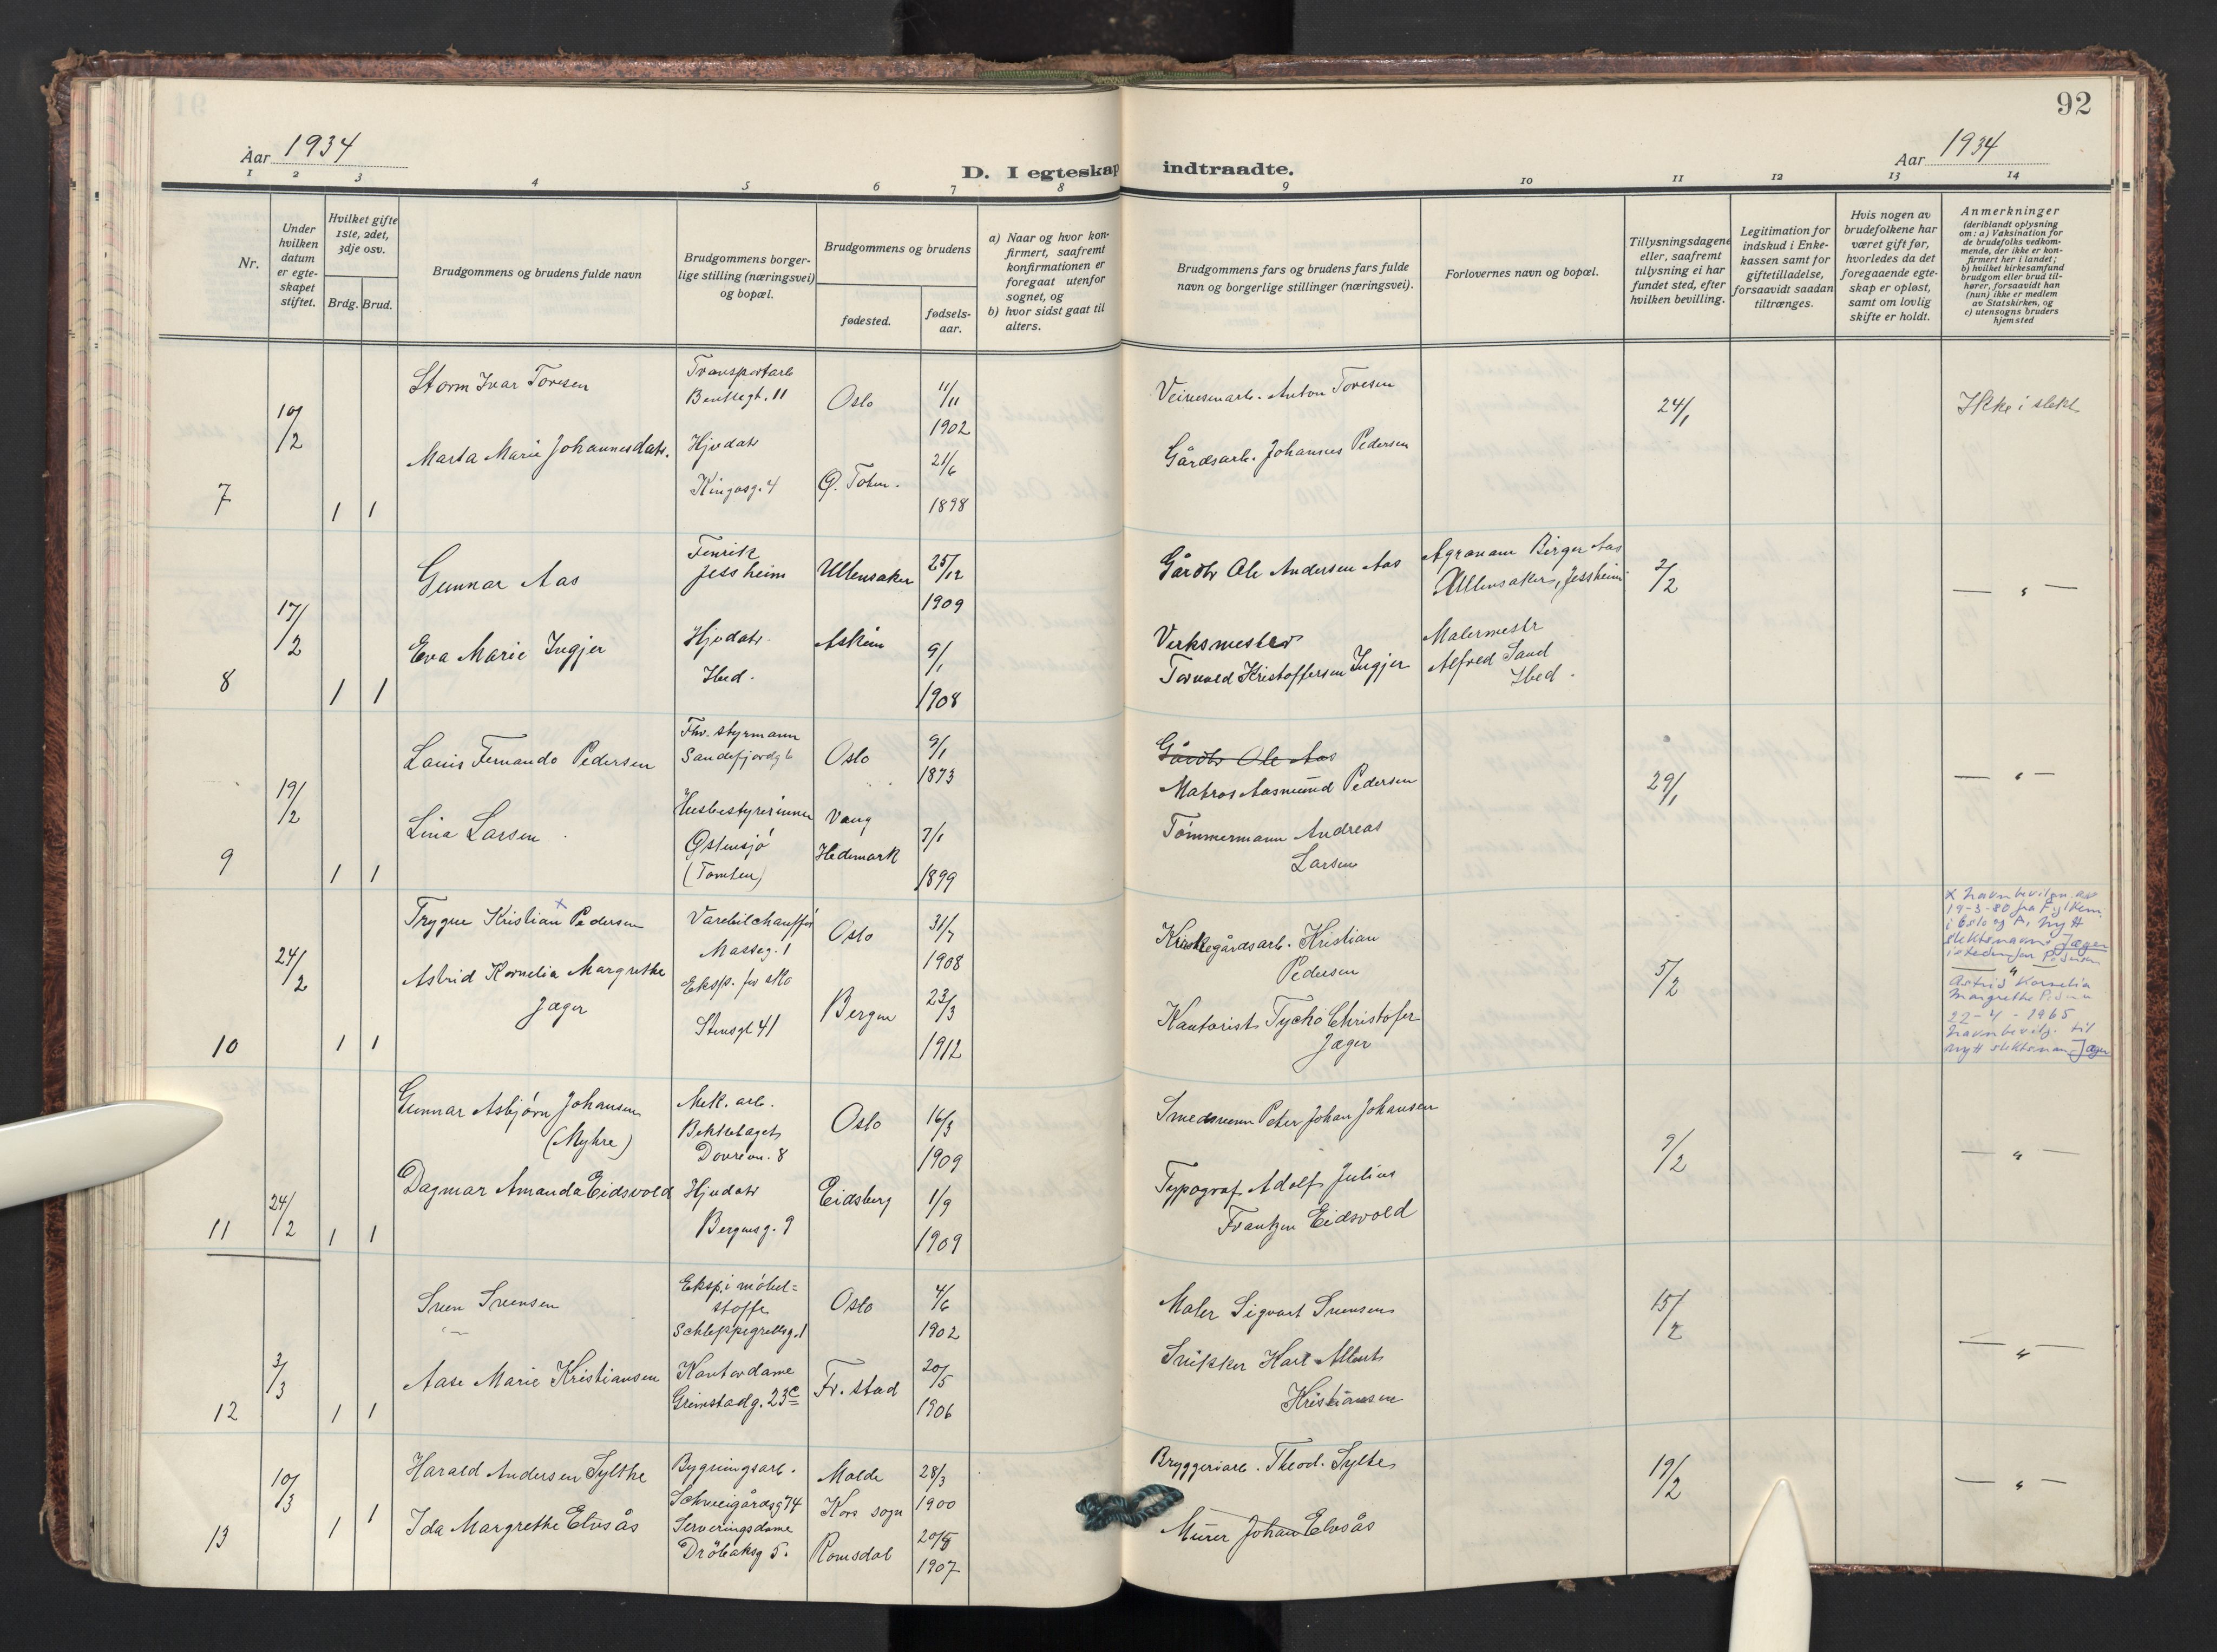 91
92
Aar 1934
D. I egteskap indtraadte.
Aar 1934
1 2 3 4 5 6 7 8 9 10 11 12 13 14
Nr.
Under hvilken datum er egteskapet stiftet.
Hvilket gifte 1ste, 2det, 3dje osv.
Brdg. Brud.
Brudgommens og brudens fulde navn
Brudgommens borgerlige stilling (næringsvei) og bopæl.
Brudgommens og brudens
fødested.
fødsels-aar.
a) Naar og hvor konfirmert, saafremt konfirmationen er foregaat utenfor sognet, og
b) hvor sidst gaat til alters.
Brudgommens fars og brudens fars fulde navn og borgerlige stillinger (næringsvei).
Forlovernes navn og bopæl.
Tillysningsdagene eller, saafremt tillysning ei har fundet sted, efter hvilken bevilling.
Legitimation for indskud i Enkekassen samt for giftetilladelse, forsaavidt saadan tiltrænges.
Hvis nogen av brudefolkene har været gift før, hvorledes da det foregaaende egteskap er opløst, samt om lovlig skifte er holdt.
Anmerkninger
(deriblandt oplysning om: a) Vaksination for de brudefolks vedkommende, der ikke er konfirmert her i landet;
b) hvilket kirkesamfund brudgom eller brud tilhører, forsaavidt han (hun) ikke er medlem av Statskirken, og
c) utensogns bruders hjemsted
7 10/2 1 1
Storm Ivar Toresen
Transportarb
Bentsegt. 11
Oslo
11/11
1902
Anton Toresen
24/1
Ikke i slekt
Marta Marie Johannesdatr.
Hjvdatr
Kingosg. 4
Ø. Toten.
21/6
1898
Gårdsarb. Johannes Pedersen
8 17/2 1 1
Gunnar Aas
Fenrik
Jessheim
Ullensaker
25/12
1909
Gårdbr Ole Andersen Aas
Agronom Birger Aas
Ullensaker, Jessheim
2/2
— " —
Eva Marie Ingjer
Hjvdatr.
Ibid.
Askim
9/1
1908
Verksmester
Torvald Kristoffersen Ingjer
Malermestr
Alfred Sand
Ibid.
9 19/2 1 1
Louis Fernando Pedersen
Fhv. styrmann
Sandefjordg 6
Oslo
9/1
1873
Gårdbr Ole Aas
Matros Aasmund Pedersen
29/1
— " —
Lina Larsen
Husbestyrerinne
Østensjø
(Tomten)
Vang
Hedemark
7/1
1899
Tømmermann Andreas
Larsen
10 24/2 1 1
Trygve Kristian x Pedersen
Varebilchauffør
Masseg. 1
Oslo
31/7
1908
Kirkegårdsarb. Kristian
Pedersen
5/2
x Navnbevilgn. av
19-3-80 fra Fylkem.
i Oslo og A, nytt
slektsnavn Jæger
istedenfor Pedersen
— " —
Astrid Kornelia
Margrethe Pedersen
22-4-1965
Navnbevilg. til
nytt slektsnavn Jæger
Astrid Kornelia Margrethe
Jæger
Eksp.
Stensgt 41
Bergen
23/3
1912
Kontorist Tycho Christofer
Jæger
11 24/2 1 1
Gunnar Asbjørn Johansen
(Myhre)
Mek. arb.
Bekkelaget
Dovrevn. 8
Oslo
16/3
1909
Smedsvenn Peter Johan Johansen
9/2
— " —
Dagmar Amanda Eidsvold
Hjvdatr
Bergensg. 9
Eidsberg
1/9
1909
Typograf Adolf Julius
Frantzen Eidsvold
12 3/3 1 1
Sven Svensen
Eksp. i møbel=
stoffr
Schleppegrellsg. 1
Oslo
4/6
1902
Maler Sigvart Svensen
15/2
— " —
Aase Marie Kristiansen
Kontordame
Grimstadg. 23c
Fr. stad
20/5
1906
Snikker Karl Albert
Kristiansen
13 10/3 1 1
Harald Andersen Sylthe
Bygningsarb.
Schweigårdsg 74
Molde
28/3
1900
Bryggeriarb. Theod. Sylte
19/2
— " —
Ida Margrethe Elvsås
Serveringsdame
Drøbaksg 5.
Kors sogn
Romsdal
20/8
1907
Murer Johan Elvsås